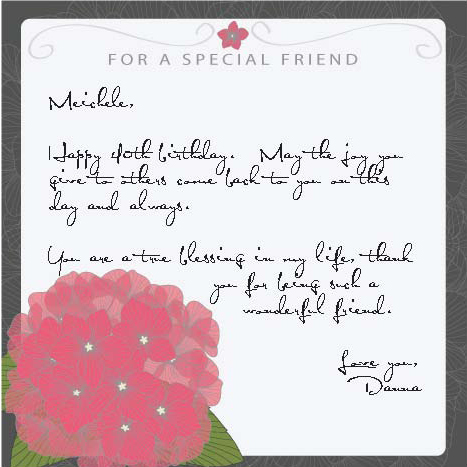 FOR A SPECIAL FRIEND
Meichele,
Happy 40th birthday. May the joy you
give to others come back to you on this
day and always.
You are a true blessing in my life, thank
you for being such a
wonderful friend.
Love you,
Danna